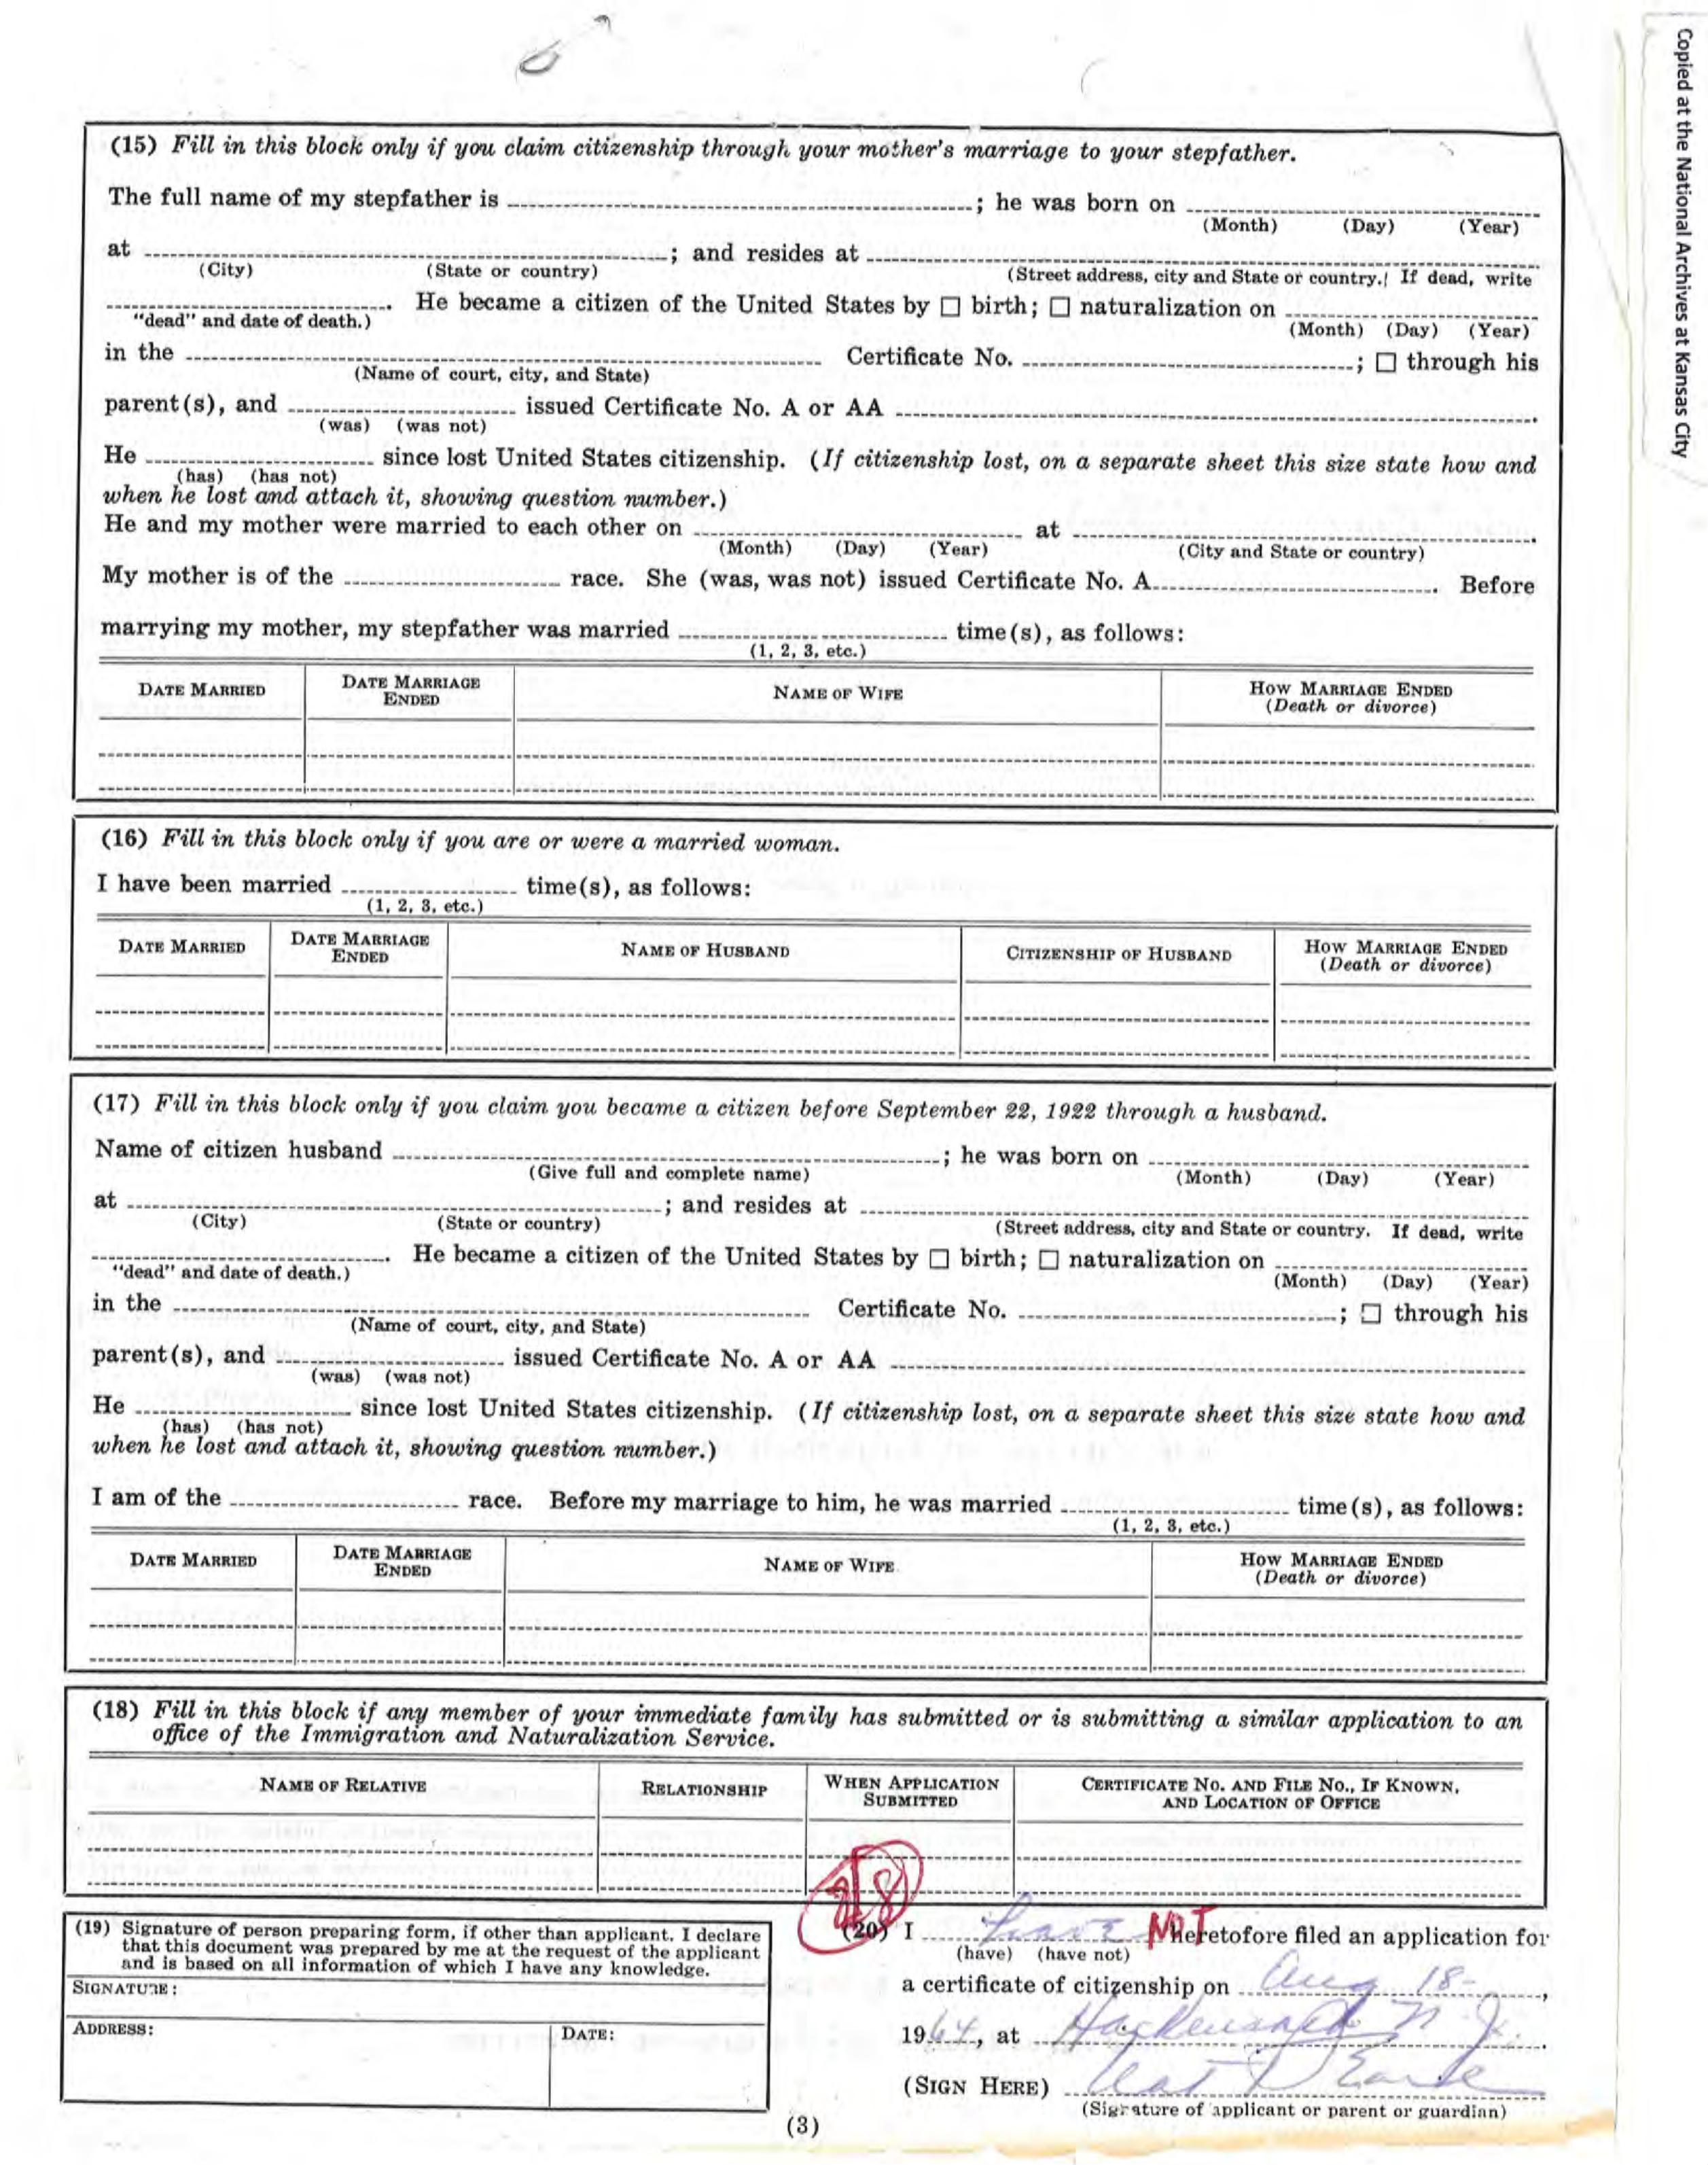 Copied at the National Archives at Kansas City
(15) Fill in this block only if you claim citizenship through your mother's marriage to your stepfather.
The full name of my stepfather is ; he was born on
(Month) (Day) (Year)
at ; and resides at
(City) (State or country) (Street address, city and State or country. If dead, write
. He became a citizen of the United States by ☐ birth; ☐ naturalization on
"dead" and date of death.) (Month) (Day) (Year)
in the Certificate No. ; ☐ through his
(Name of court, city, and State)
parent(s), and issued Certificate No. A or AA .
(was) (was not)
He since lost United States citizenship. (If citizenship lost, on a separate sheet this size state how and
(has) (has not)
when he lost and attach it, showing question number.)
He and my mother were married to each other on at .
(Month) (Day) (Year) (City and State or country)
My mother is of the race. She (was, was not) issued Certificate No. A . Before
marrying my mother, my stepfather was married time(s), as follows:
(1, 2, 3, etc.)
DATE MARRIED DATE MARRIAGE ENDED NAME OF WIFE HOW MARRIAGE ENDED (Death or divorce)
(16) Fill in this block only if you are or were a married woman.
I have been married time(s), as follows:
(1, 2, 3, etc.)
DATE MARRIED DATE MARRIAGE ENDED NAME OF HUSBAND CITIZENSHIP OF HUSBAND HOW MARRIAGE ENDED (Death or divorce)
(17) Fill in this block only if you claim you became a citizen before September 22, 1922 through a husband.
Name of citizen husband ; he was born on
(Give full and complete name) (Month) (Day) (Year)
at ; and resides at
(City) (State or country) (Street address, city and State or country. If dead, write
. He became a citizen of the United States by ☐ birth; ☐ naturalization on
"dead" and date of death.) (Month) (Day) (Year)
in the Certificate No. ; ☐ through his
(Name of court, city, and State)
parent(s), and issued Certificate No. A or AA
(was) (was not)
He since lost United States citizenship. (If citizenship lost, on a separate sheet this size state how and
(has) (has not)
when he lost and attach it, showing question number.)
I am of the race. Before my marriage to him, he was married time(s), as follows:
(1, 2, 3, etc.)
DATE MARRIED DATE MARRIAGE ENDED NAME OF WIFE HOW MARRIAGE ENDED (Death or divorce)
(18) Fill in this block if any member of your immediate family has submitted or is submitting a similar application to an
office of the Immigration and Naturalization Service.
NAME OF RELATIVE RELATIONSHIP WHEN APPLICATION SUBMITTED CERTIFICATE NO. AND FILE NO., IF KNOWN, AND LOCATION OF OFFICE
(19) Signature of person preparing form, if other than applicant. I declare
that this document was prepared by me at the request of the applicant
and is based on all information of which I have any knowledge.
SIGNATURE:
ADDRESS: DATE:
(20) I have NOT heretofore filed an application for
(have) (have not)
a certificate of citizenship on Aug 18- ,
1964, at Hackensack N. J.
(SIGN HERE)
(Signature of applicant or parent or guardian)
(3)